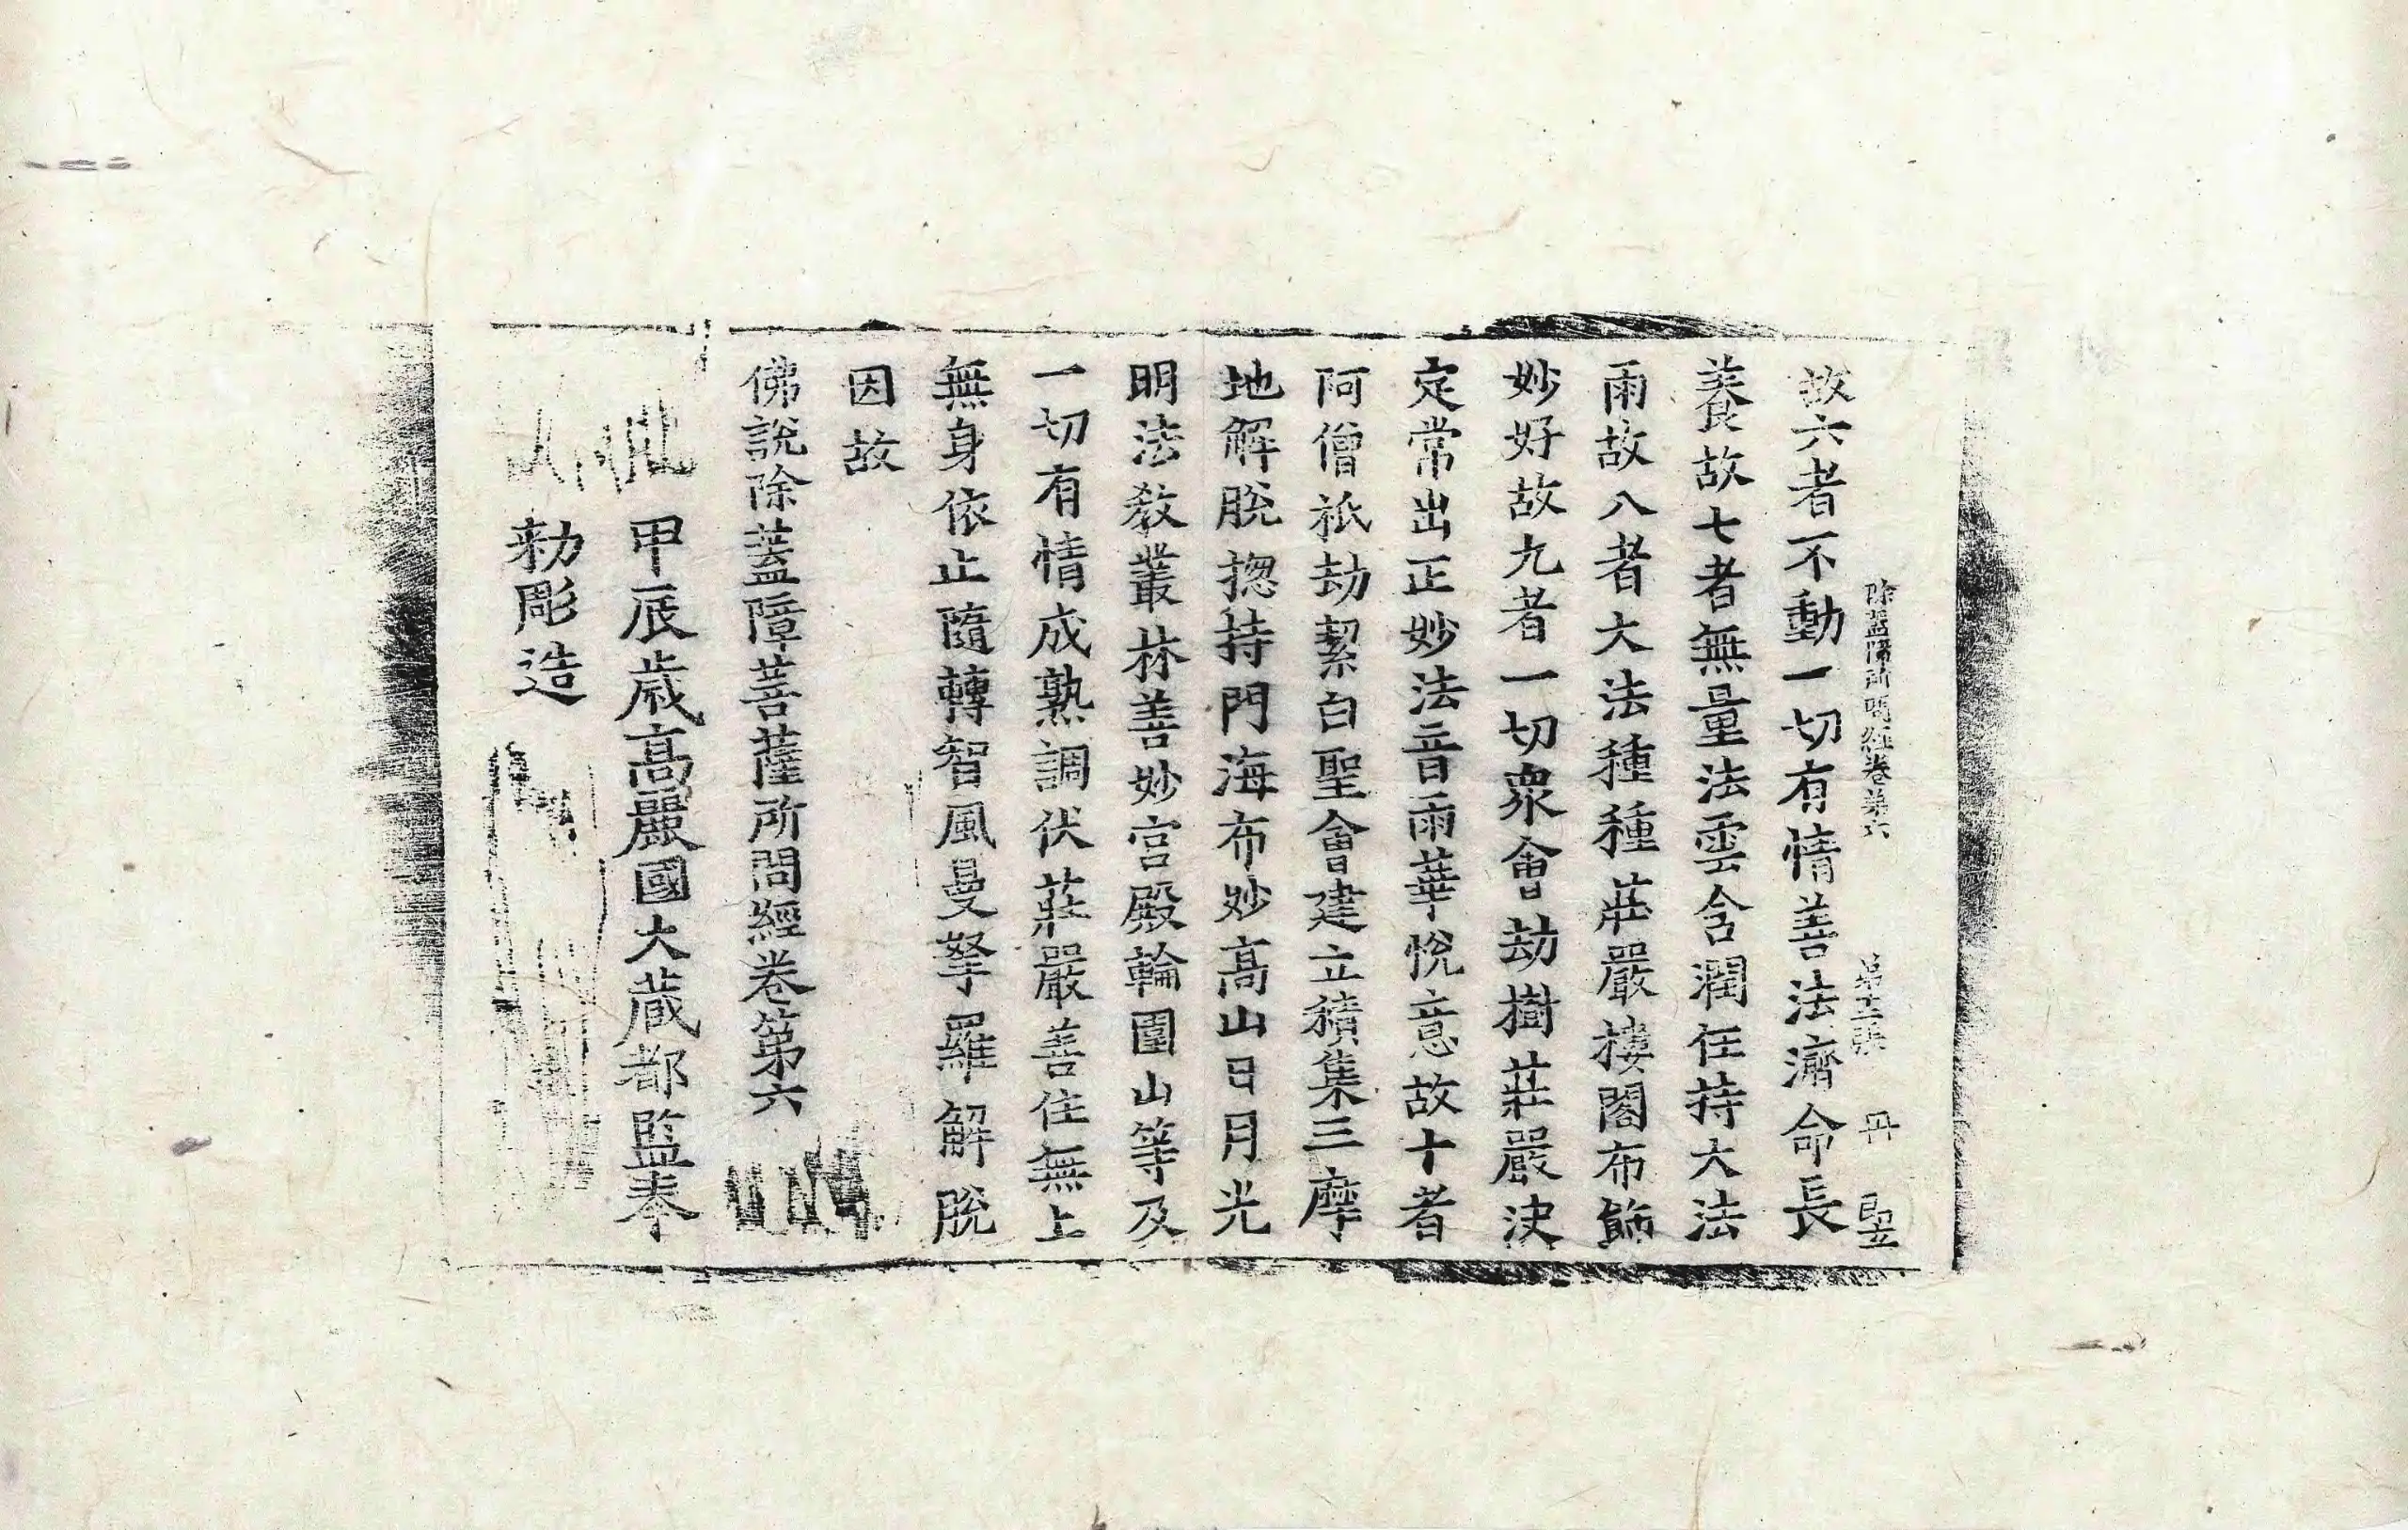 除蓋障所問經卷第六 第十二張 丹 竪
故六者不動一切有情善法濟命長
養故七者無量法雲含潤任持大法
雨故八者大法種種莊嚴樓閣布飾
妙好故九者一切衆會劫樹莊嚴決
定常出正妙法音雨華悅意故十者
阿僧祇劫絜白聖會建立積集三摩
地解脫摠持門海布妙高山日月光
明法敎叢林善妙宮殿輪圍山等及
一切有情成熟調伏莊嚴善住無上
無身依止隨轉智風曼拏羅解脫
因故
佛說除蓋障菩薩所問經卷第六
甲辰歲高麗國大藏都監奉
勅彫造